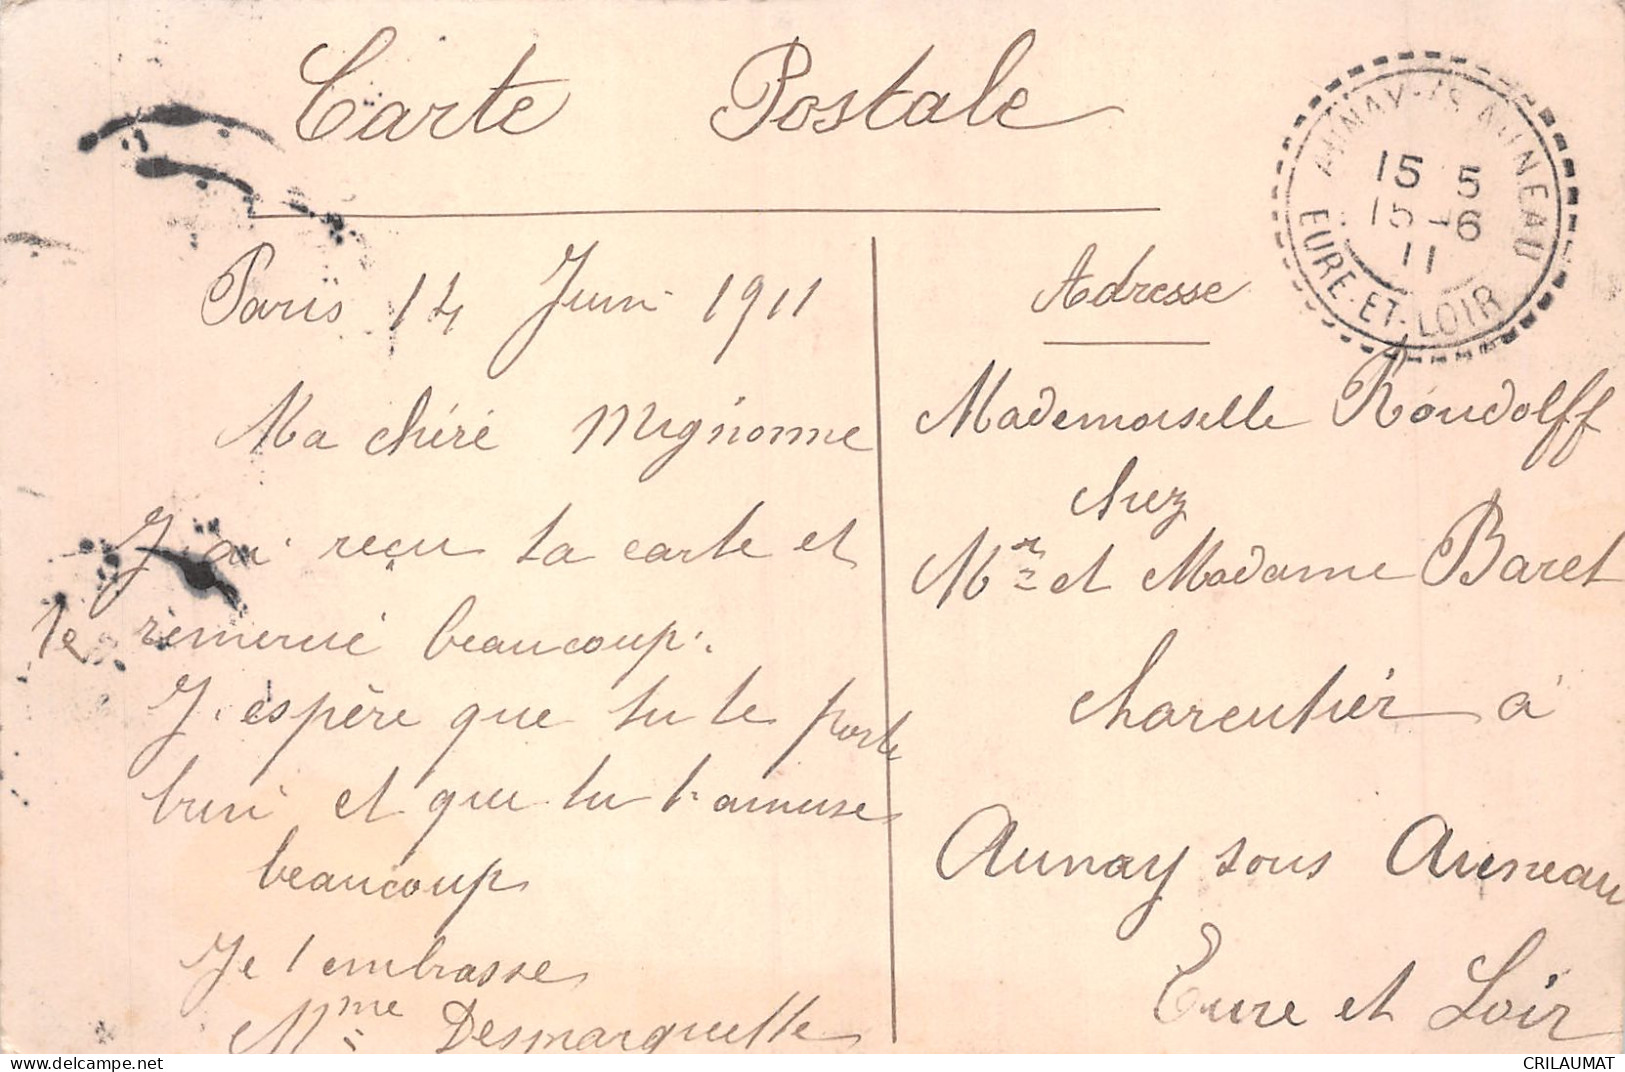 Carte Postale
AUNAY-S-AUNEAU
15 5
15-6
11
EURE-ET-LOIR
Paris 14 Juin 1911
Ma chéré Mignonne
J'ai reçu ta carte et
te remercié beaucoup.
J'espère que tu te porte
bien et que tu t'amuse
beaucoup
Je t embrasse
Mme Desmarquette
Adresse
Mademoiselle Roudolff
chez
Mr et Madame Baret
charentier à
Aunay sous Auneau
Eure et Loir
CRILAUMAT